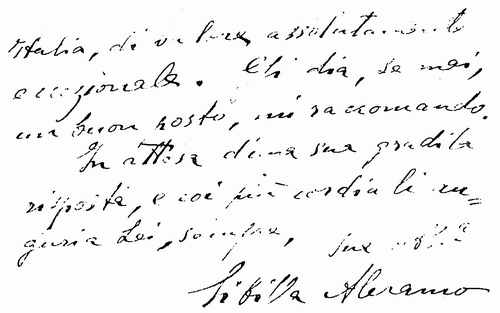 Italia, di valore assolutamente
eccezionale. Gli dia, se mai,
un buon posto, mi raccomando.
In attesa d'una sua gradita
risposta, e coi più cordiali au=
gurii a Lei, sempre, sua
Sibilla Aleramo